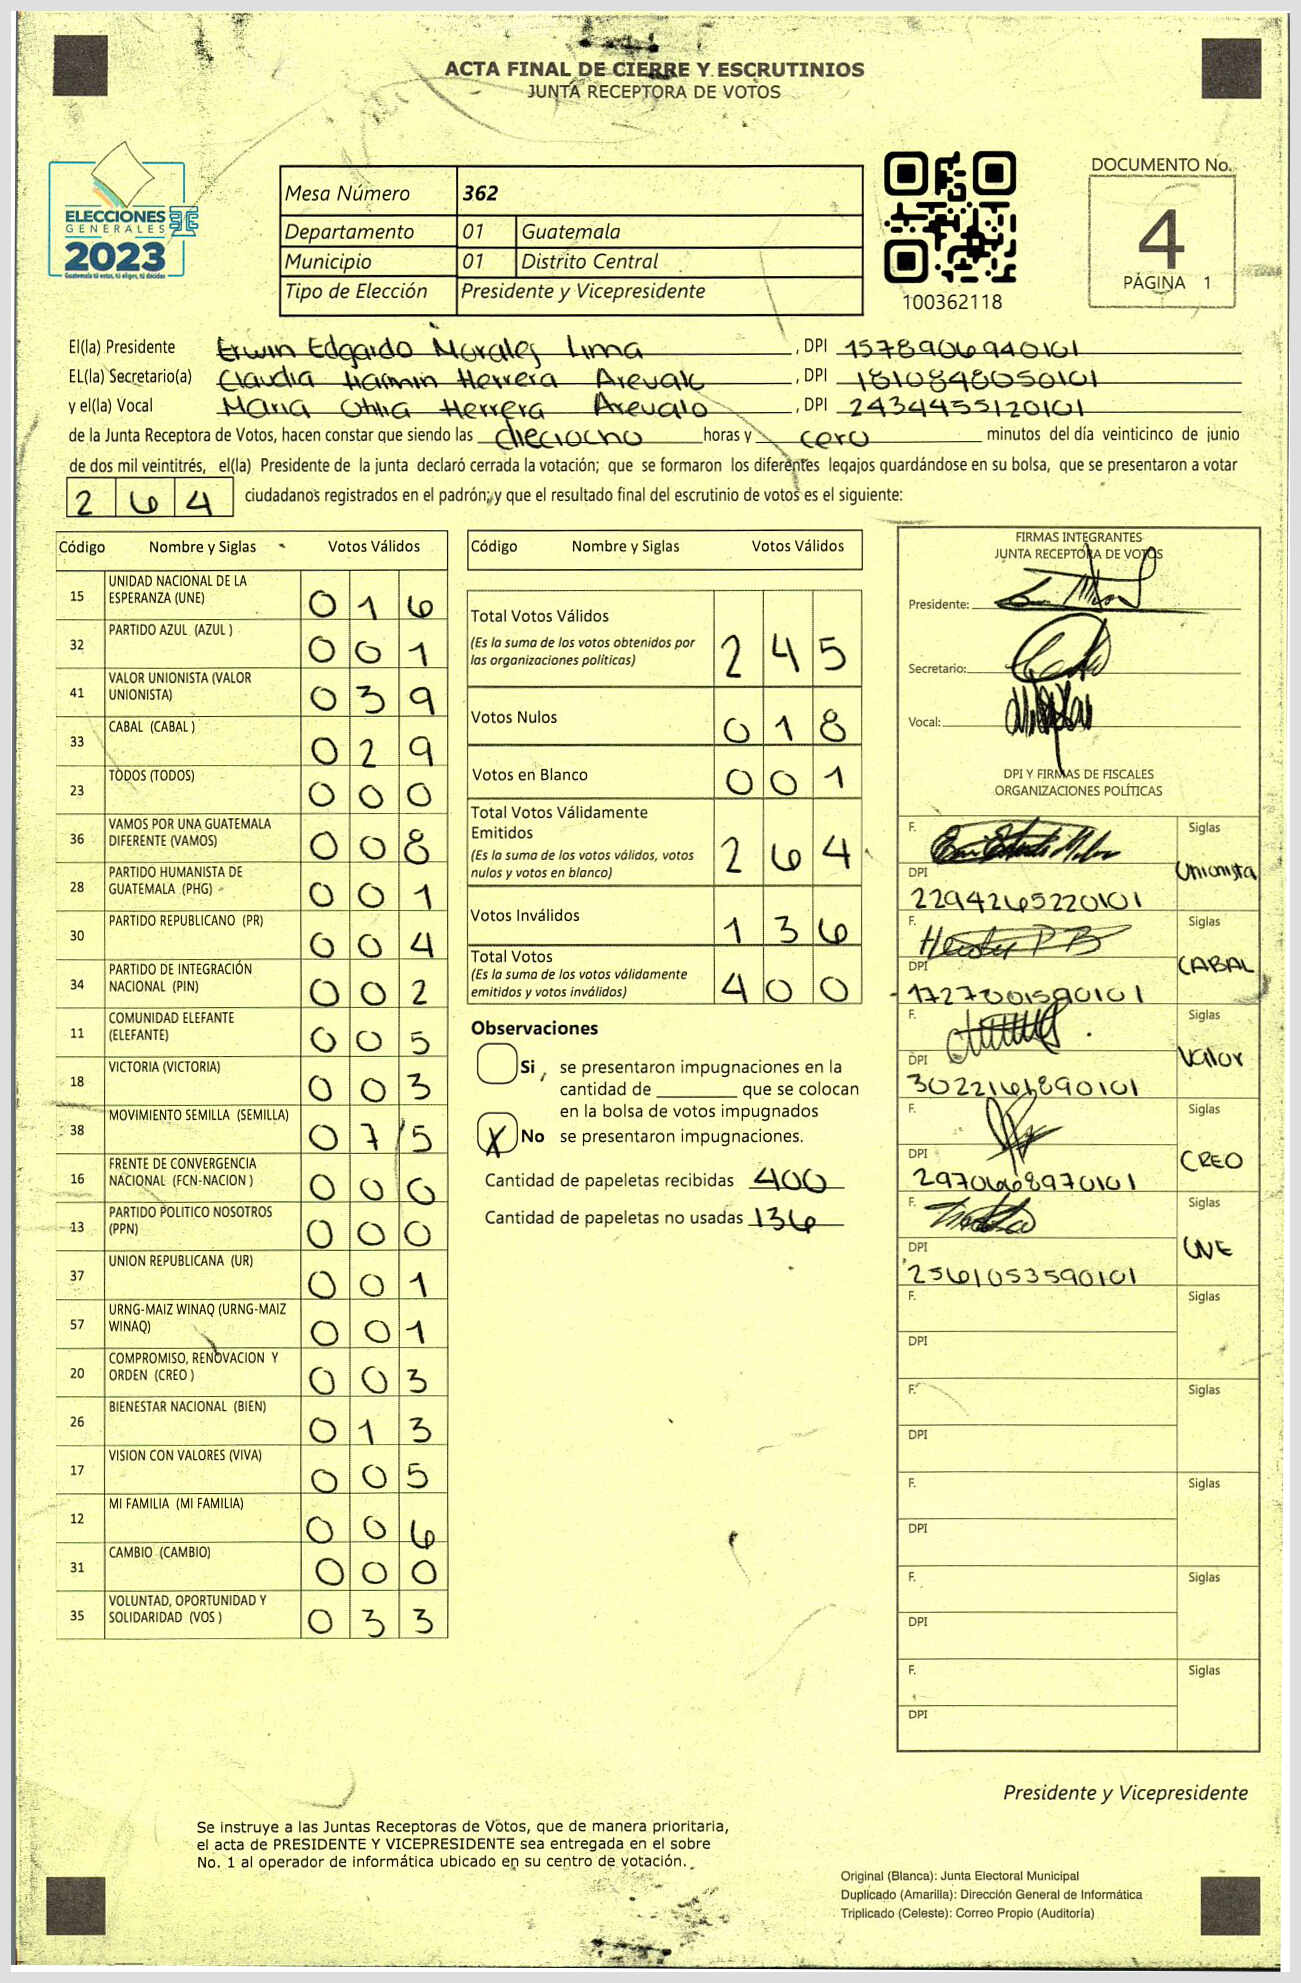 ACTA FINAL DE CIERRE Y ESCRUTINIOS
JUNTA RECEPTORA DE VOTOS
ELECCIONES
GENERALES
2023
Guatemala tú votas, tú eliges, tú decides
Mesa Número 362
Departamento 01 Guatemala
Municipio 01 Distrito Central
Tipo de Elección Presidente y Vicepresidente
100362118
DOCUMENTO No.
4
PÁGINA 1
El(la) Presidente Erwin Edgardo Morales Lima , DPI 1578906940101
EL(la) Secretario(a) Claudia Herrera Arevalo , DPI 1810848050101
y el(la) Vocal Maria Herrera Arevalo , DPI 2434455120101
de la Junta Receptora de Votos, hacen constar que siendo las dieciocho horas y cero minutos del día veinticinco de junio
de dos mil veintitrés, el(la) Presidente de la junta declaró cerrada la votación; que se formaron los diferentes legajos guardándose en su bolsa, que se presentaron a votar
264 ciudadanos registrados en el padrón; y que el resultado final del escrutinio de votos es el siguiente:
Código Nombre y Siglas Votos Válidos
15 UNIDAD NACIONAL DE LA ESPERANZA (UNE) 016
32 PARTIDO AZUL (AZUL ) 001
41 VALOR UNIONISTA (VALOR UNIONISTA) 039
33 CABAL (CABAL ) 029
23 TODOS (TODOS) 000
36 VAMOS POR UNA GUATEMALA DIFERENTE (VAMOS) 008
28 PARTIDO HUMANISTA DE GUATEMALA (PHG) 001
30 PARTIDO REPUBLICANO (PR) 004
34 PARTIDO DE INTEGRACIÓN NACIONAL (PIN) 002
11 COMUNIDAD ELEFANTE (ELEFANTE) 005
18 VICTORIA (VICTORIA) 003
38 MOVIMIENTO SEMILLA (SEMILLA) 075
16 FRENTE DE CONVERGENCIA NACIONAL (FCN-NACION ) 000
13 PARTIDO POLITICO NOSOTROS (PPN) 000
37 UNION REPUBLICANA (UR) 001
57 URNG-MAIZ WINAQ (URNG-MAIZ WINAQ) 001
20 COMPROMISO, RENOVACION Y ORDEN (CREO ) 003
26 BIENESTAR NACIONAL (BIEN) 013
17 VISION CON VALORES (VIVA) 005
12 MI FAMILIA (MI FAMILIA) 006
31 CAMBIO (CAMBIO) 000
35 VOLUNTAD, OPORTUNIDAD Y SOLIDARIDAD (VOS ) 033
Código Nombre y Siglas Votos Válidos
Total Votos Válidos 245
(Es la suma de los votos obtenidos por
las organizaciones políticas)
Votos Nulos 018
Votos en Blanco 001
Total Votos Válidamente
Emitidos 264
(Es la suma de los votos válidos, votos
nulos y votos en blanco)
Votos Inválidos 136
Total Votos 400
(Es la suma de los votos válidamente
emitidos y votos inválidos)
Observaciones
Si , se presentaron impugnaciones en la
cantidad de ________ que se colocan
en la bolsa de votos impugnados
X No se presentaron impugnaciones.
Cantidad de papeletas recibidas 400
Cantidad de papeletas no usadas 136
FIRMAS INTEGRANTES
JUNTA RECEPTORA DE VOTOS
Presidente:
Secretario:
Vocal:
DPI Y FIRMAS DE FISCALES
ORGANIZACIONES POLÍTICAS
F. Siglas
Unionista
DPI
2294265220101
F. Siglas
CABAL
DPI
1727001590101
F. Siglas
Valor
DPI
F. Siglas
CREO
DPI
2970668970101
F. Siglas
UNE
DPI
2561053590101
F. Siglas
DPI
F. Siglas
DPI
F. Siglas
DPI
F. Siglas
DPI
F. Siglas
DPI
Presidente y Vicepresidente
Se instruye a las Juntas Receptoras de Votos, que de manera prioritaria,
el acta de PRESIDENTE Y VICEPRESIDENTE sea entregada en el sobre
No. 1 al operador de informática ubicado en su centro de votación.
Original (Blanca): Junta Electoral Municipal
Duplicado (Amarilla): Dirección General de Informática
Triplicado (Celeste): Correo Propio (Auditoría)